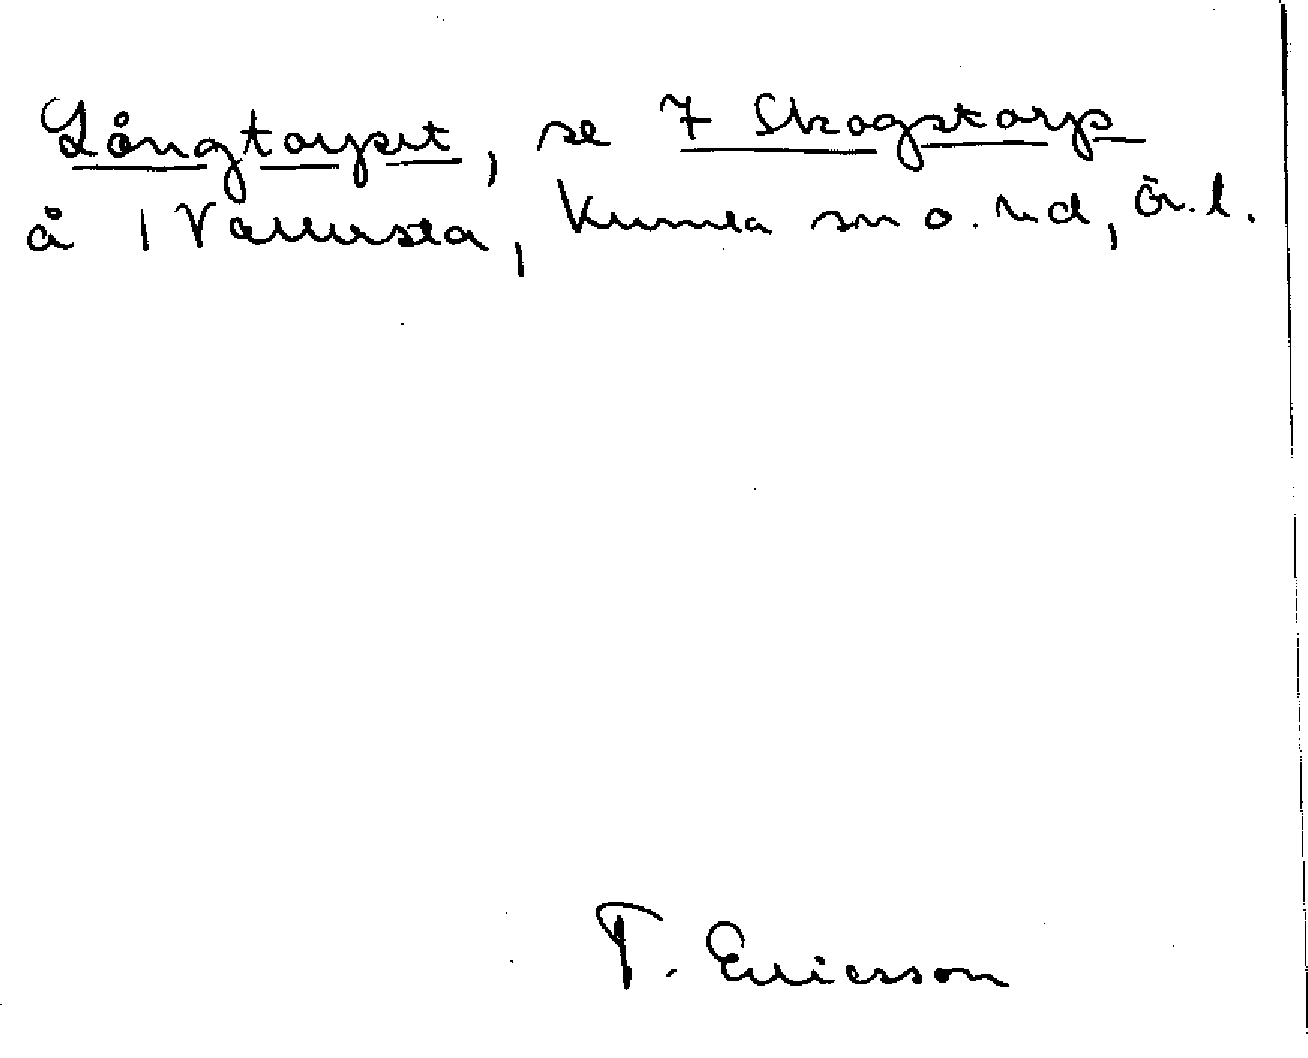 Långtorpet, se 7 Skogstorp
å 1 Vallersta, Kumla sn o. hd, Ör. l.
T. Ericsson